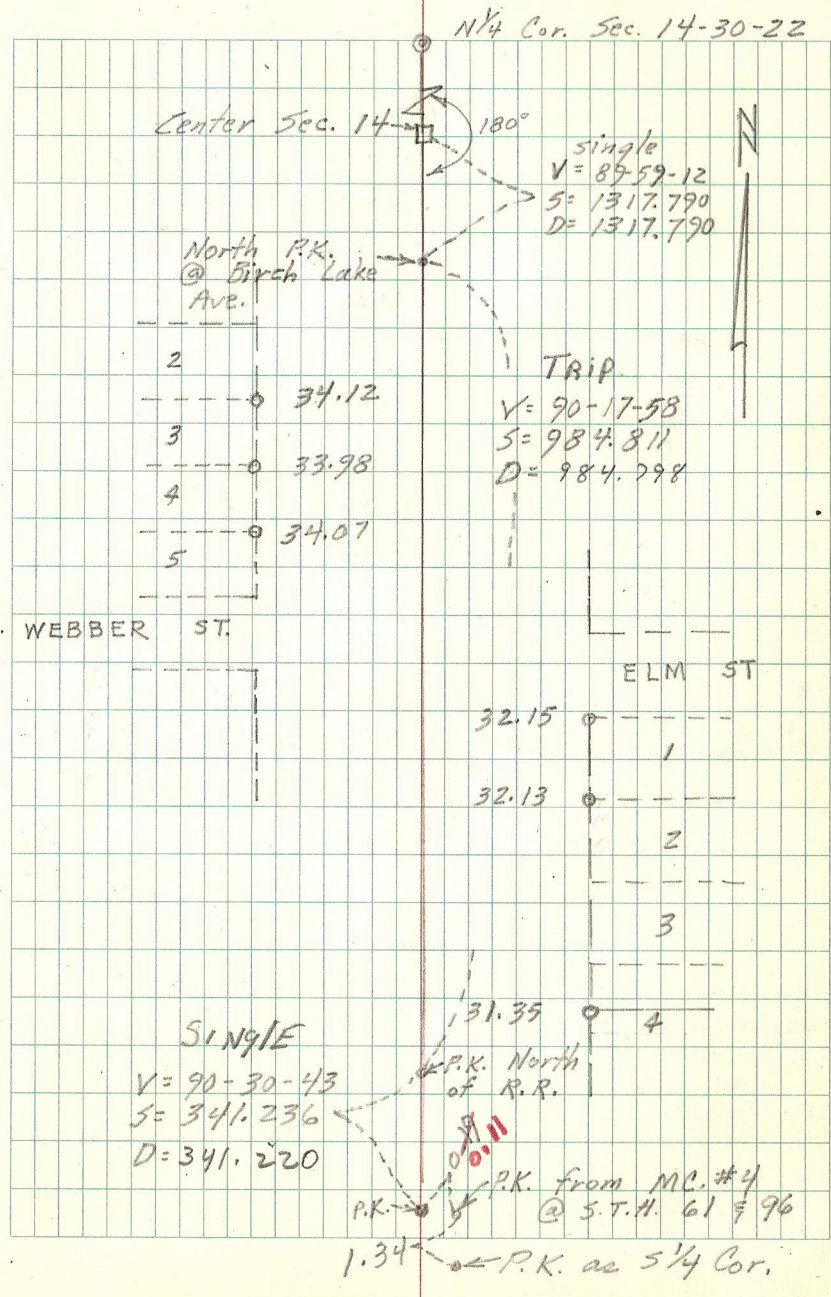 N 1/4 Cor. Sec. 14-30-22
Center Sec. 14
180°
N
single
V = 89-59-12
S = 1317.790
D = 1317.790
North P.K.
@ Birch Lake
Ave.
2
34.12
TRIP
V = 90-17-58
S = 984.811
D = 984.798
3
33.98
4
34.07
5
WEBBER ST.
ELM ST
32.15
1
32.13
2
3
31.35
4
SINGLE
V = 90-30-43
S = 341.236
D = 341.220
P.K. North
of R.R.
0.11
P.K. from MC. #4
@ S.T.H. 61 & 96
P.K.
1.34
P.K. as S 1/4 Cor.